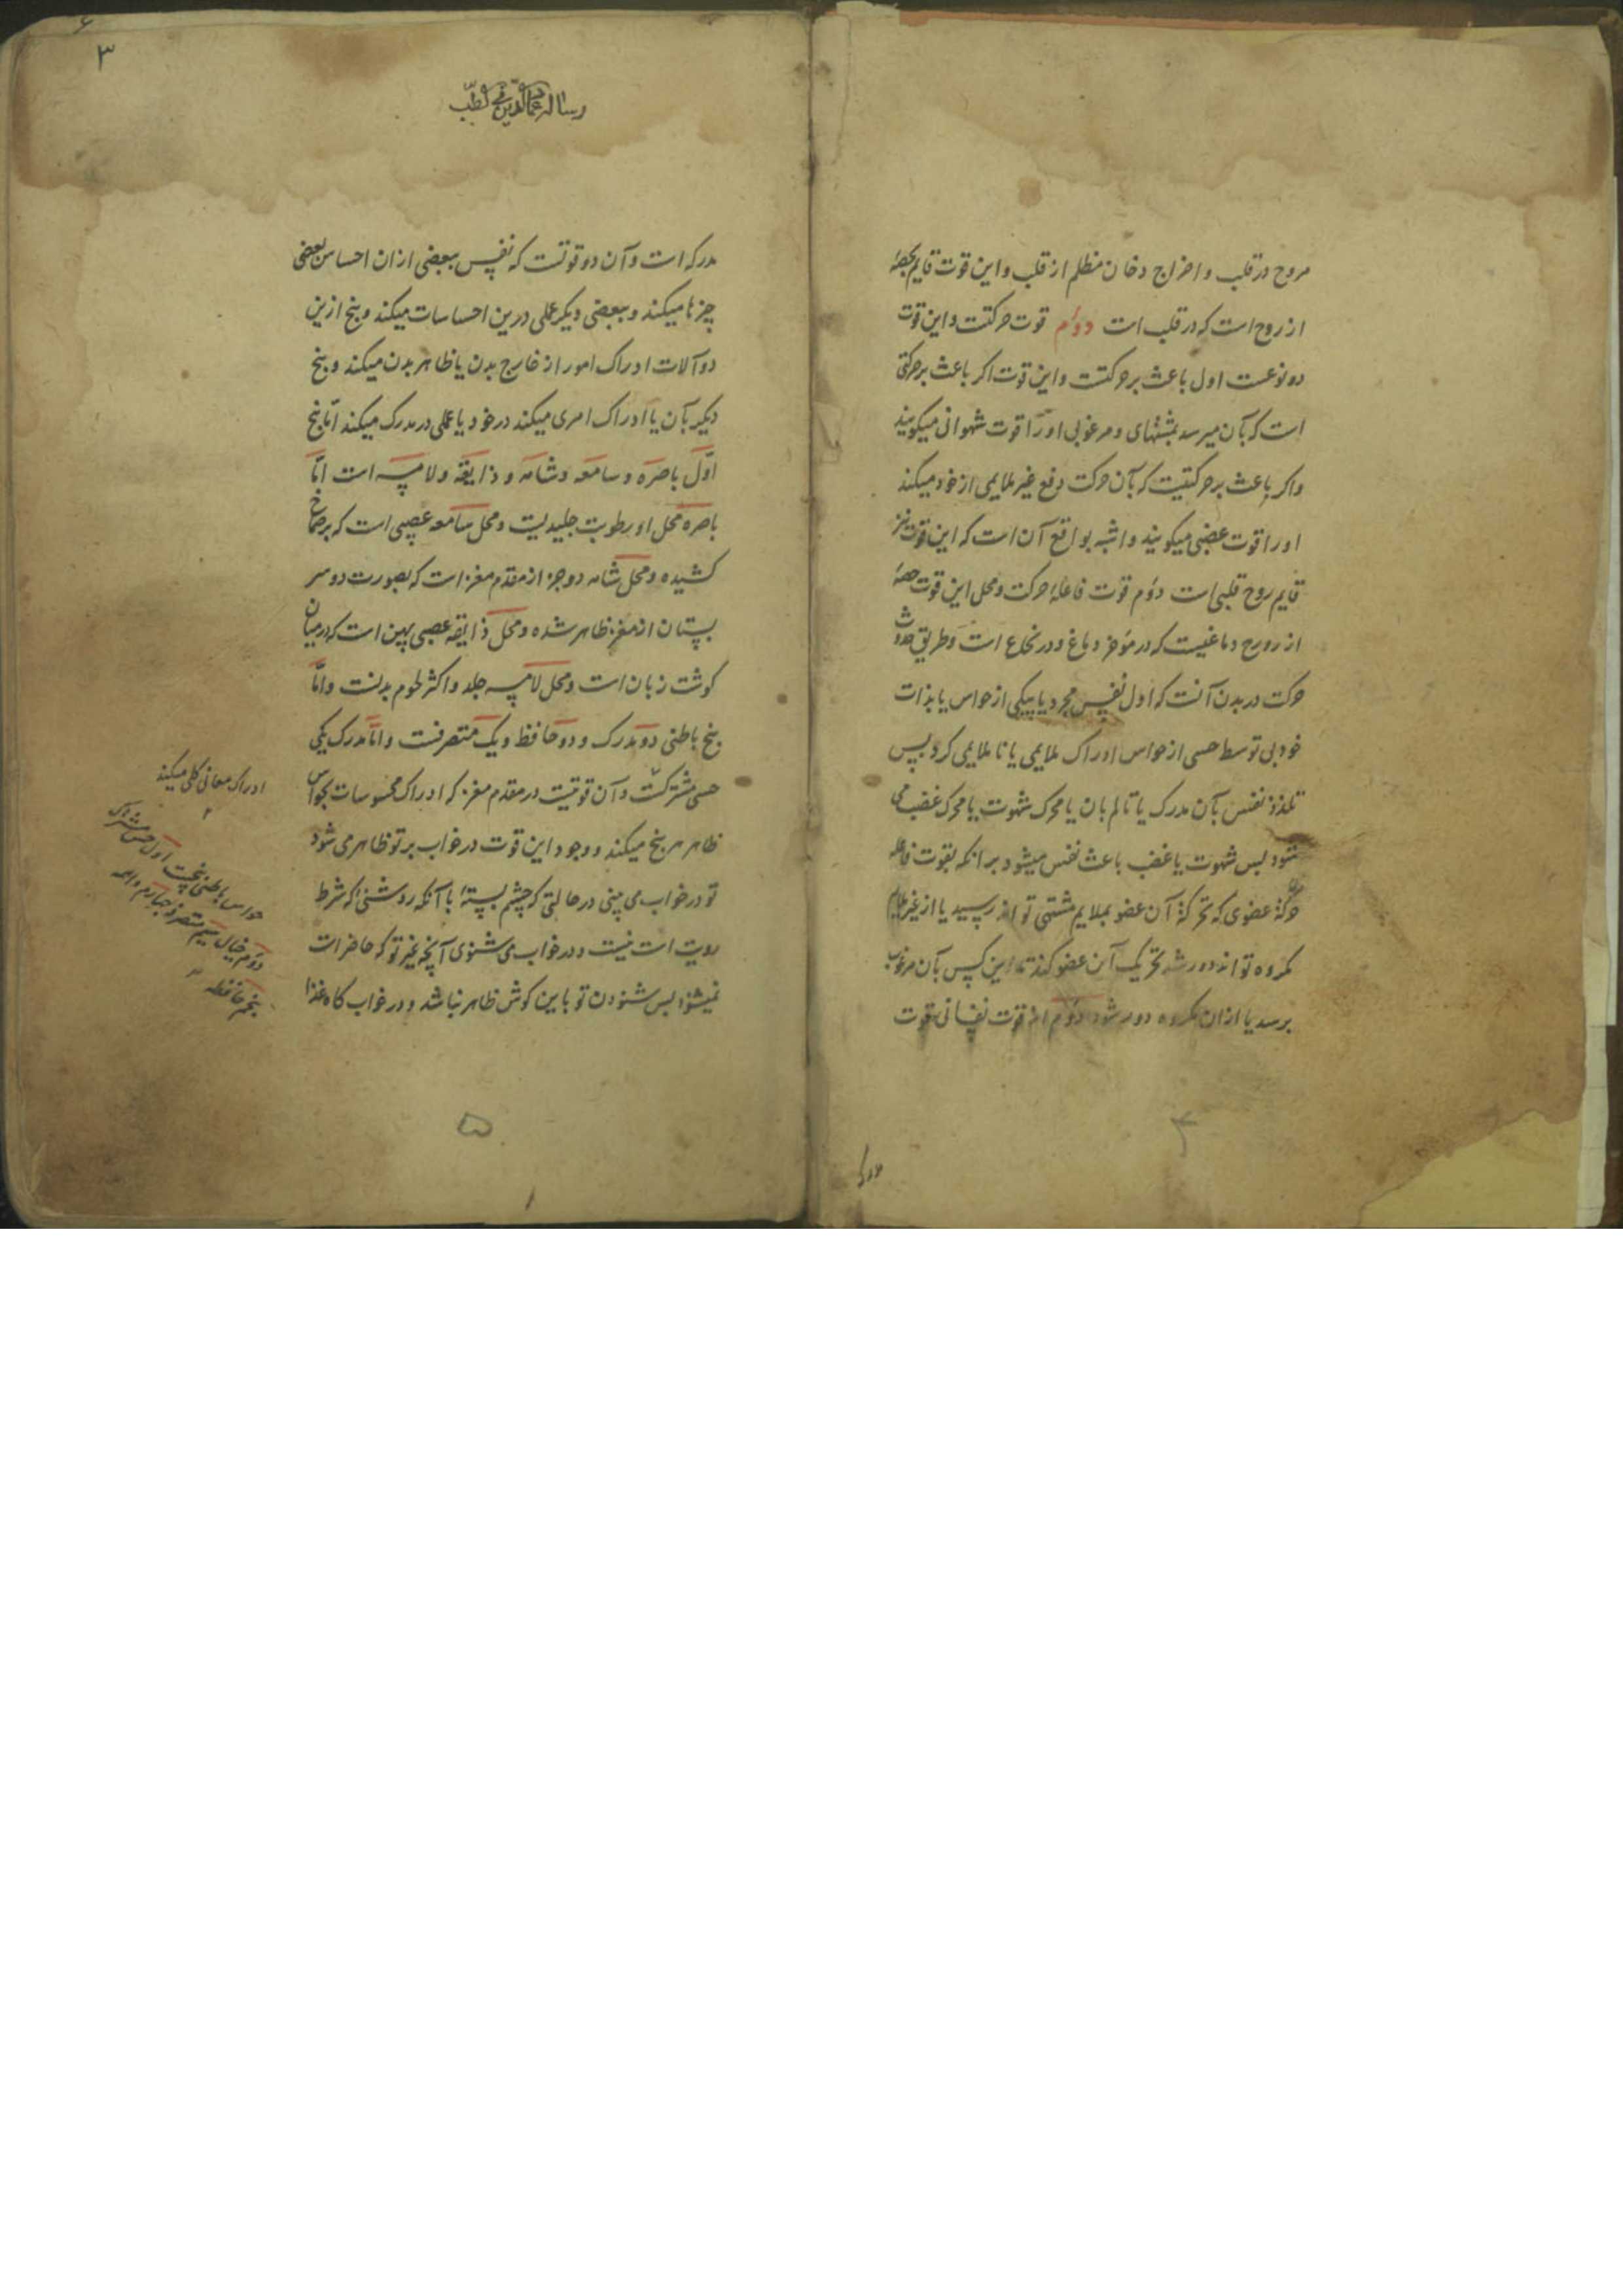 مروح در قلب و اخراج دخان مظلم از قلب و این قوت قایم بحصهٔ
از روح است که در قلب است دوم قوت حرکتست و این قوت
دو نوعست اول باعث بر حرکتست و این قوت اکر باعث بر حرکتی
است که بآن میرسد بمشتهای و مرغوبی او را قوت شهوانی میکویند
و اکر باعث بر حرکتیست که بآن حرکت دفع غیر ملایمی از خود میکند
او را قوت غضبی میکویند و اشبه بواقع آن است که این قوت نیز
قایم روح قلبی است دوم قوت فاعلهٔ حرکت و محل این قوت حصهٔ
از روح دماغیست که در مؤخر دماغ و در نخاع است و طریق حدوث
حرکت در بدن آنست که اول نفس مجرد یا بیکی از حواس یا بذات
خود بی توسط حسی از حواس ادراک ملایمی یا ناملایمی کرد پس
تلذذ نفس بآن مدرک یا تالم بان یا محرک شهوت یا محرک غضب می
شود پس شهوت یا غضب باعث نفس میشود بر انکه بقوت فاعله
حرکة عضوی که بحرکة آن عضو بملایم مشتهی تواند رسید یا از غیر ملایم
مکروه تواند دور شد تحریک آن عضو کند تا این کس بآن مرغوب
برسد یا از ان مکروه دور شود دوم از قوت نفسانی قوت
۳
رساله عماد الدین فی الطب
مدرکه است و آن دو قوتست که نفس ببعضی از ان احساس بعضی
چیزها میکند و ببعضی دیکر عملی درین احساسات میکند و پنج ازین
دو آلات ادراک امور از خارج بدن یا ظاهر بدن میکند و پنج
دیکر بآن یا ادراک امری میکند در خود یا عملی در مدرک میکند امّا پنج
اوّل باصره و سامعه و شامه و ذایقه و لامسه است امّا
باصره محل او رطوبت جلیدیست و محل سامعه عصبی است که بر صماخ
کشیده و محل شامه دو جزء از مقدم مغز است که بصورت دو سر
پستان از مغز ظاهر شده و محل ذایقه عصبی پهن است که در میان
کوشت زبان است و محل لامسه جلد و اکثر لحوم بدنست و امّا
پنج باطنی دو مدرک و دو حافظ و یک متصرفست و امّا مدرک یکی
حس مشترکست و آن قوتیست در مقدم مغز که ادراک محسوسات بحواس
ظاهر هر پنج میکند و وجود این قوت در خواب بر تو ظاهر می شود
تو در خواب می بینی در حالتی که چشم بستهٔ با آنکه روشنی که شرط
رویت است نیست و در خواب می شنوی آنچه غیر تو که حاضر است
نمیشنود پس شنودن تو باین کوش ظاهر نباشد و در خواب کاه غذا
ادراک معانی کلی میکند
حواس باطنی پنجست اول حس مشترک
دوم خیال سیم متصرفه چهارم واهمه
پنجم حافظه
۴
۵